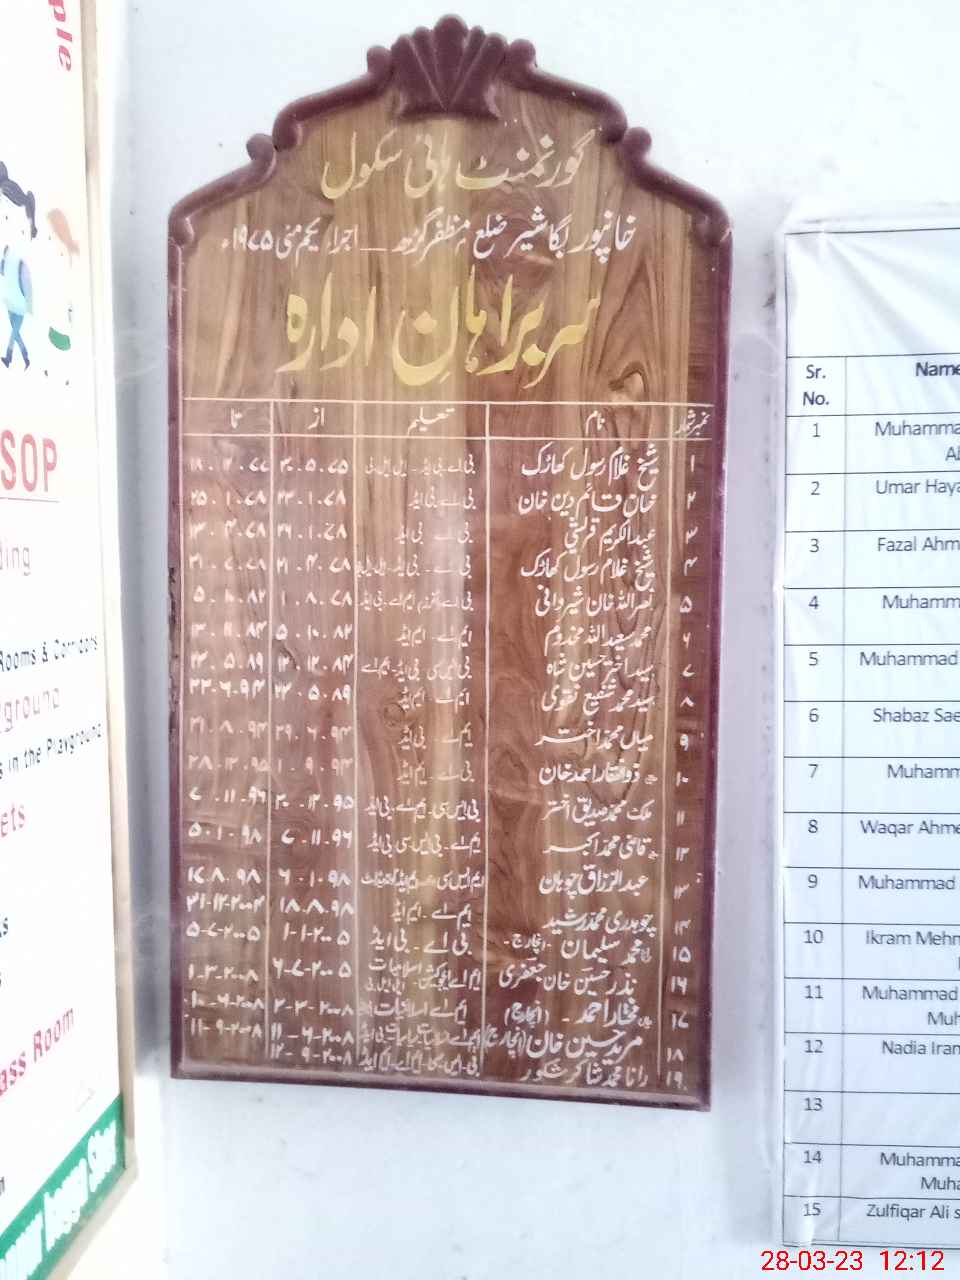 گورنمنٹ ہائی سکول
خانپور بگا شیر ضلع مظفر گڑھ __ اجراء یکم مئی ۱۹۷۵ء
سربراہانِ ادارہ
نمبر شمار نام تعلیم از تا
۱ شیخ غلام رسول کھاڑک بی اے۔ بی ایڈ۔ ایل ایل بی ۲۰۔۵۔۷۵
۲ خان قائم دین خان بی اے۔ بی ایڈ ۲۳۔۱۔۷۸ ۲۵۔۱۔۷۸
۳ عبدالکریم قریشی بی اے۔ بی ایڈ ۲۶۔۱۔۷۸
۴ شیخ غلام رسول کھاڑک بی اے۔ بی ایڈ۔ ایل ایل بی ۲۱۔۴۔۷۸ ۳۱۔۷۔۷۸
۵ نصراللہ خان شیروانی ۱۔۸۔۷۸ ۵۔۱۰۔۸۲
۶ محمد سعید اللہ مخدوم ایم اے۔ ایم ایڈ ۵۔۱۰۔۸۲
۷ سید اختر حسین شاہ بی ایس سی۔ بی ایڈ۔ ایم اے ۱۲۔۱۲۔۸۴ ۲۲۔۵۔۸۹
۸ سید محمد شفیع نقوی ایم اے۔ ایم ایڈ ۲۲۔۵۔۸۹ ۲۲۔۶۔۹۴
۹ میاں محمد اختر ایم اے۔ بی ایڈ ۲۹۔۶۔۹۴ ۳۱۔۸۔۹۴
۱۰ ذوالفقار احمد خان بی اے۔ ایم ایڈ ۱۔۹۔۹۴ ۲۸۔۱۲۔۹۵
۱۱ ملک محمد صدیق اختر بی ایس سی۔ ایم اے۔ بی ایڈ ۲۰۔۱۲۔۹۵ ۷۔۱۱۔۹۶
۱۲ قاضی محمد اکبر ایم اے۔ بی ایس سی بی ایڈ ۷۔۱۱۔۹۶ ۵۔۱۔۹۸
۱۳ عبدالرزاق چوہان ایم ایس سی ۶۔۱۔۹۸ ۱۷۔۸۔۹۸
۱۴ چوہدری محمد رشید ایم اے۔ ایم ایڈ ۱۸۔۸۔۹۸ ۳۱۔۱۲۔۲۰۰۴
۱۵ محمد سلیمان (انچارج) بی اے۔ بی ایڈ ۱۔۱۔۲۰۰۵ ۵۔۷۔۲۰۰۵
۱۶ نذر حسین خان جعفری ایم اے ایجوکیشن۔ اسلامیات ۶۔۷۔۲۰۰۵ ۱۔۳۔۲۰۰۸
۱۷ مختار احمد۔ (انچارج) ایم اے اسلامیات ۲۔۳۔۲۰۰۸ ۱۰۔۶۔۲۰۰۸
۱۸ مرید حسین خان (انچارج) ۱۱۔۶۔۲۰۰۸ ۱۱۔۹۔۲۰۰۸
۱۹ رانا محمد شاکر شکور بی۔ایس۔سی۔ایم۔اے۔ایم ایڈ ۱۲۔۹۔۲۰۰۸
SOP
Rooms & Corridors
in the Playground
ass Room
Sr. No. Name
1 Muhamma
2 Umar Haya
3 Fazal Ahm
4 Muhamm
5 Muhammad
6 Shabaz Sae
7 Muhamm
8 Waqar Ahme
9 Muhammad
10 Ikram Mehm
11 Muhammad
Muh
12 Nadia Iran
13
14 Muhamma
Muha
15 Zulfiqar Ali s
28-03-23 12:12